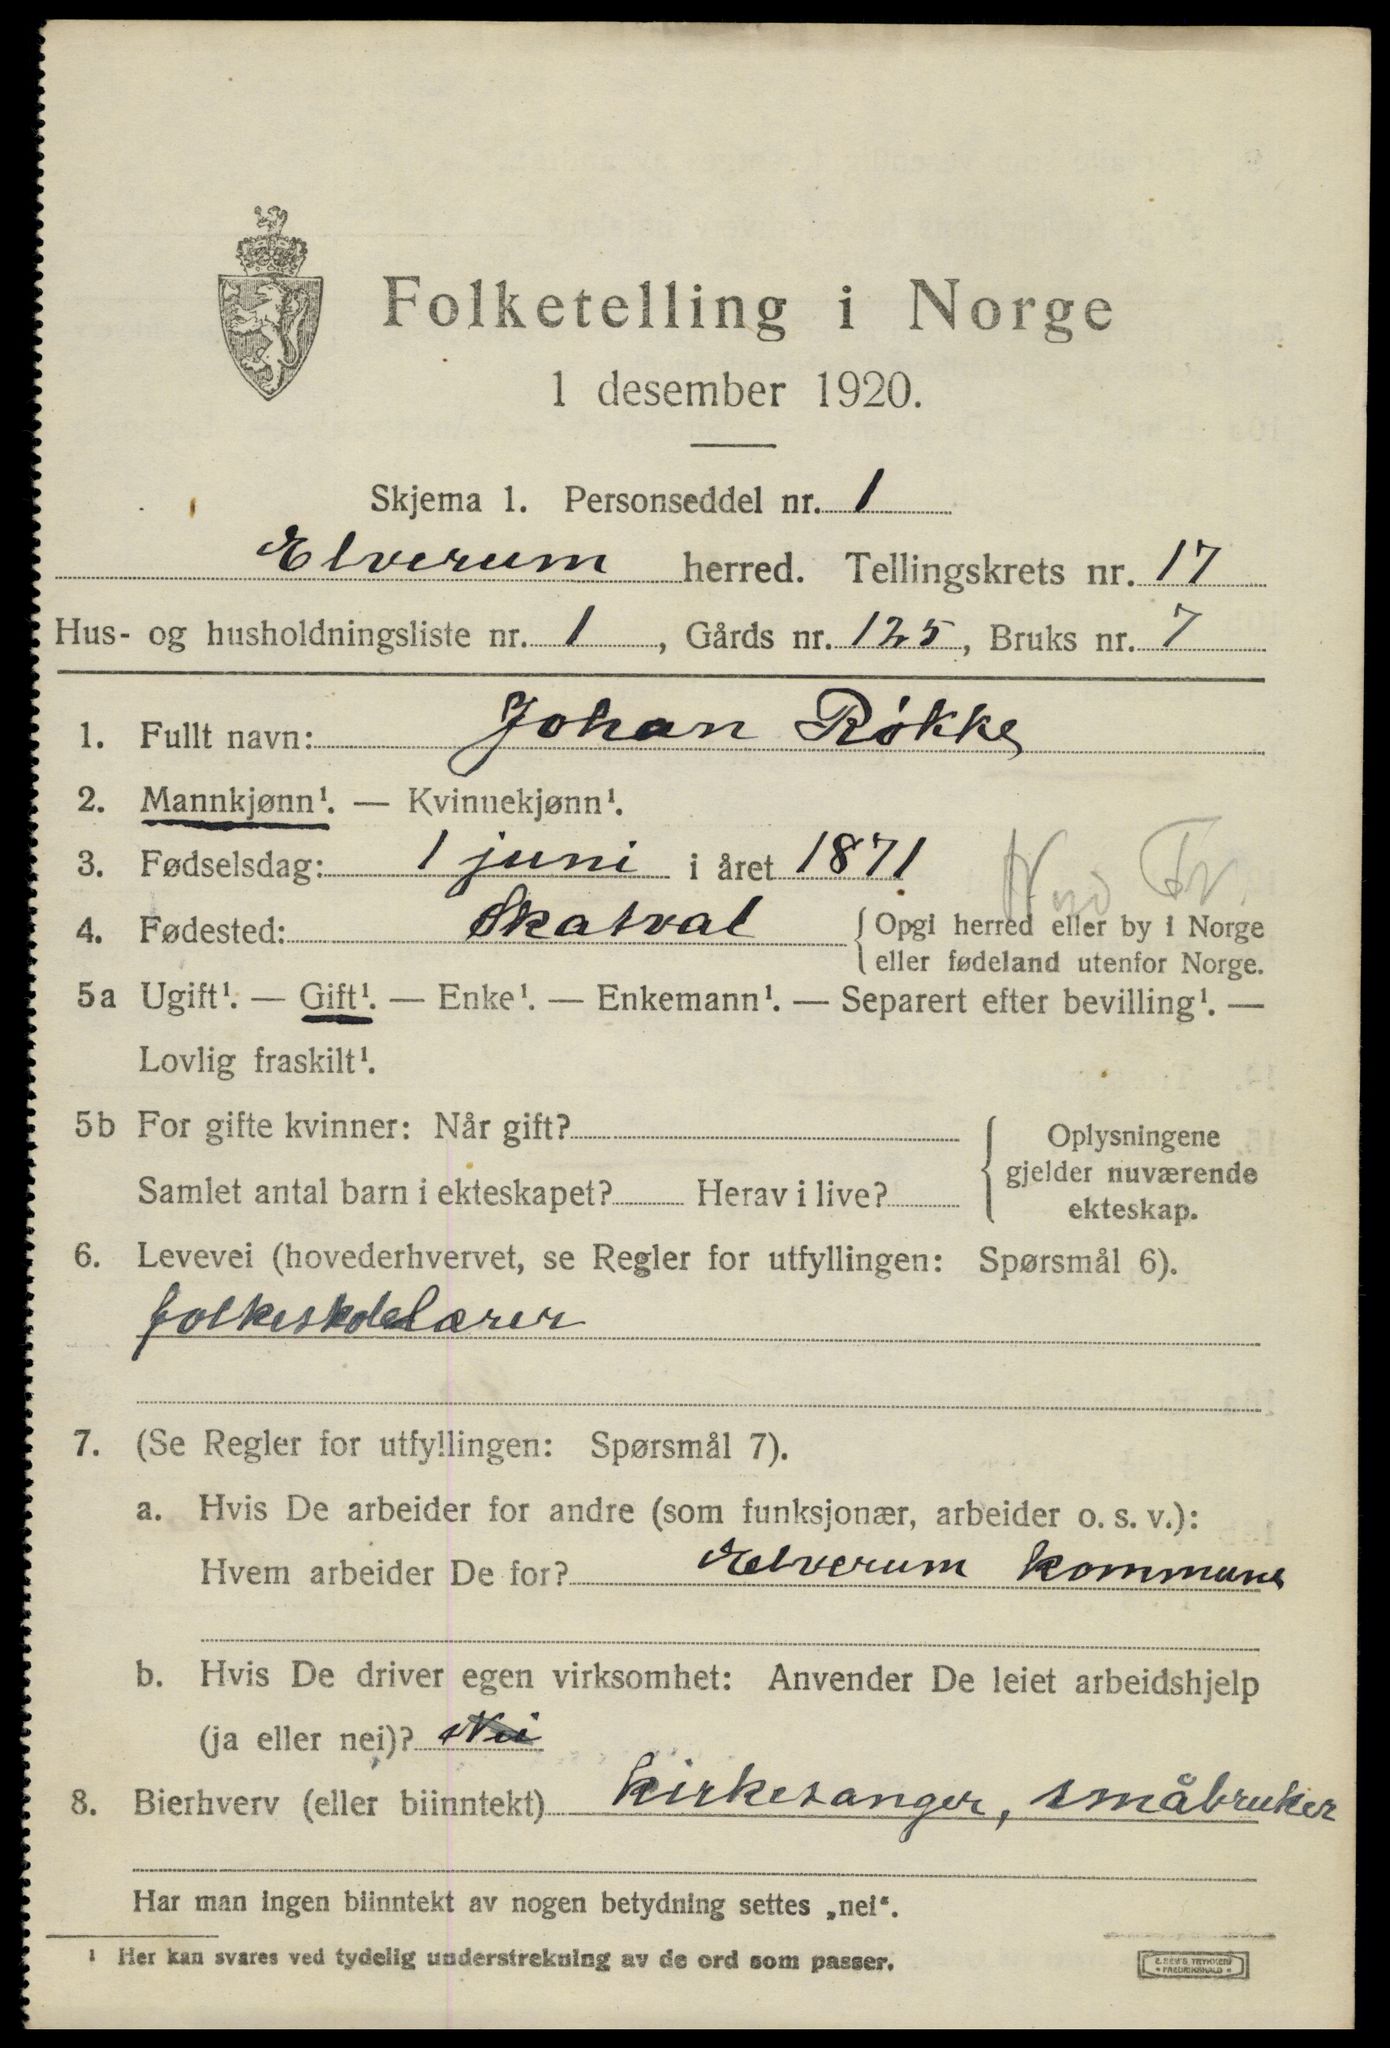 Folketelling i Norge
1 desember 1920.
Skjema 1. Personseddel nr. 1
Elverum herred. Tellingskrets nr. 17
Hus- og husholdningsliste nr. 1, Gårds nr. 125, Bruks nr. 7
1. Fullt navn: Johan Røkke
2. Mannkjønn¹. — Kvinnekjønn¹.
3. Fødselsdag: 1 juni i året 1871
4. Fødested: Skatval { Opgi herred eller by i Norge
eller fødeland utenfor Norge.
5a Ugift¹. — Gift¹. — Enke¹. — Enkemann¹. — Separert efter bevilling¹. —
Lovlig fraskilt¹.
5b For gifte kvinner: Når gift?
Samlet antal barn i ekteskapet? Herav i live?
{ Oplysningene
gjelder nuværende
ekteskap.
6. Levevei (hovederhvervet, se Regler for utfyllingen: Spørsmål 6).
folkeskolelærer
7. (Se Regler for utfyllingen: Spørsmål 7).
a. Hvis De arbeider for andre (som funksjonær, arbeider o. s. v.):
Hvem arbeider De for? Elverum kommune
b. Hvis De driver egen virksomhet: Anvender De leiet arbeidshjelp
(ja eller nei)? Nei
8. Bierhverv (eller biinntekt) kirkesanger, småbruker
Har man ingen biinntekt av nogen betydning settes „nei“.
¹ Her kan svares ved tydelig understrekning av de ord som passer.